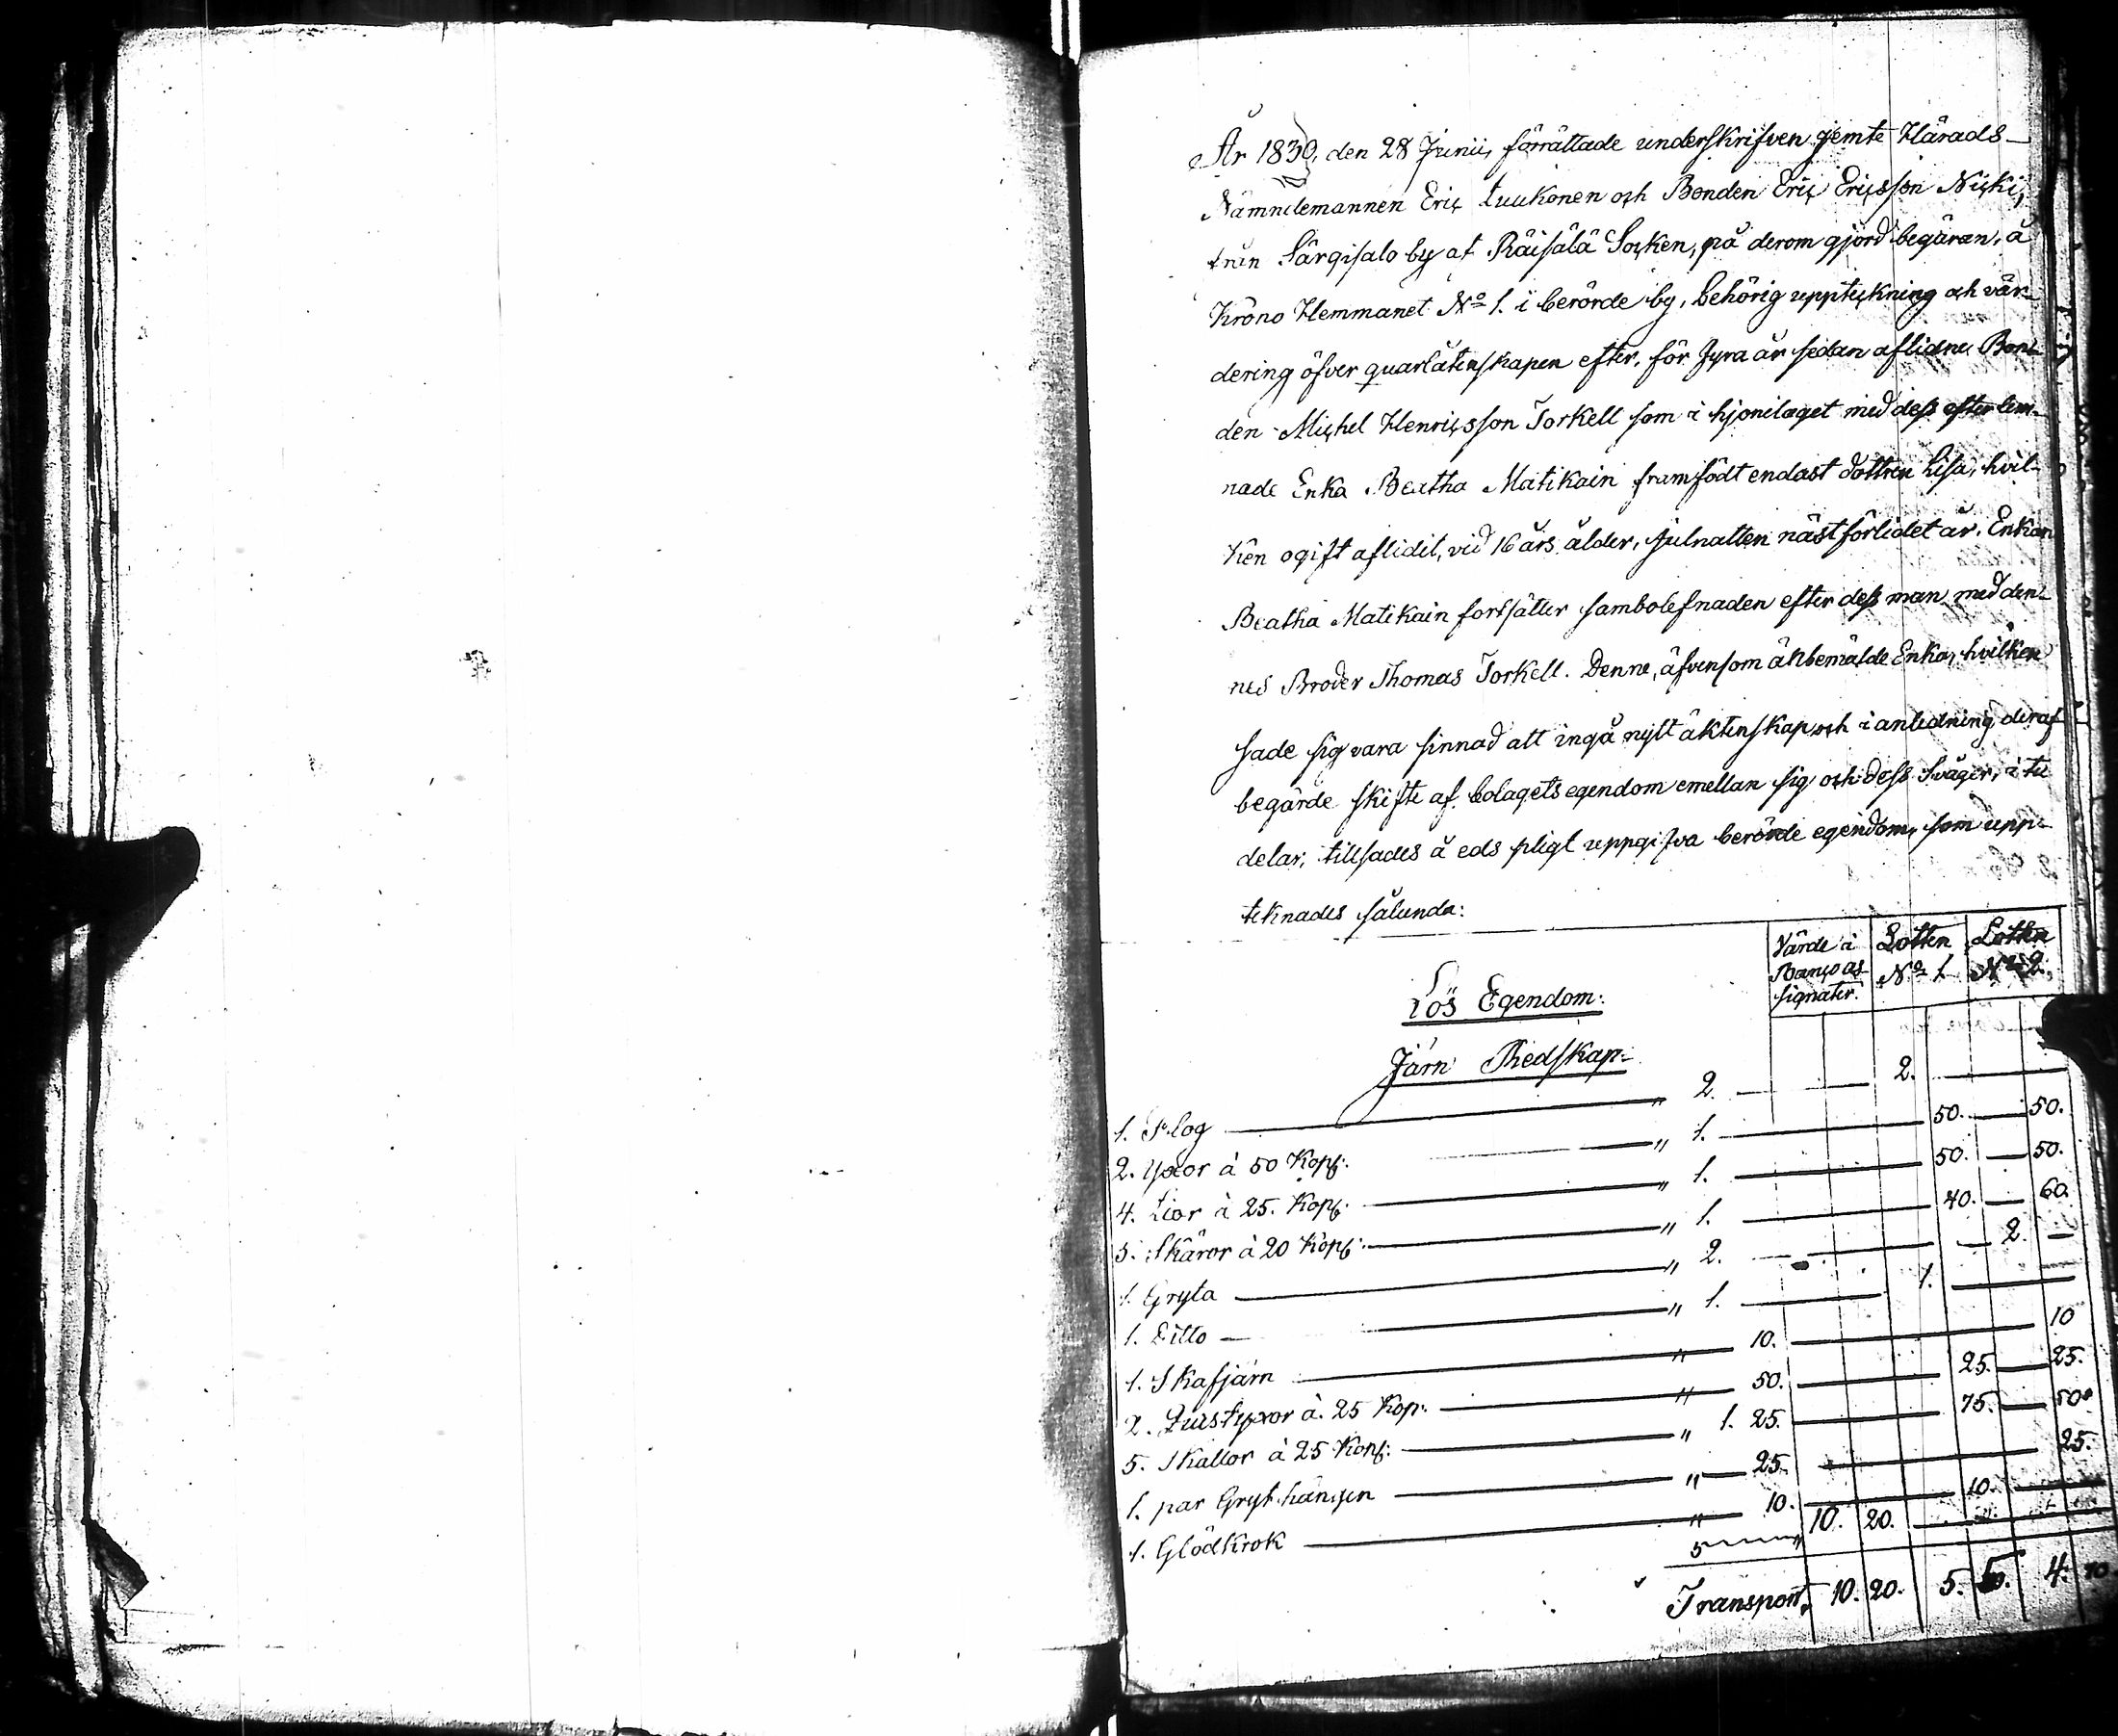 År 1830, den 28 Junii, förrättade underskrifven jemte Härads-
Nämndemannen Eric Luukonen och Bonden Eric Ericsson Nicki,
från Särgisalo by af Räisälä Socken, på derom gjord begäran, å
Krono Hemmanet No 1. i berörde by, behörig uppteckning och vär-
dering öfver quarlåtenskapen efter, för fyra år sedan aflidne Bon-
den Michel Henricsson Torkell som i hjonelaget med dess efterlem-
nade Enka Beatha Matikain framfödt endast dottren Lisa, hvil-
ken ogift aflidit, vid 16 års ålder, Julnatten nästförlidet år. Enkan
Beatha Matikain fortsätter sambolefnaden efter dess man med den-
nes Broder Thomas Torkell. Denne, äfvensom ähbemälde Enka, hvilken
sade sig vara sinnad att ingå nytt äktenskap och i anledning deraf
begärde skifte af bolagets egendom emellan sig och dess Svåger, i tu
delar; tillsades å eds pligt uppgifva berörde egendom, som upp-
teknades sålunda:
Värde i Banco as signater. Lotten No 1 Lotten No 2.
Lös Egendom:
Järn Redskap:
1. Plog " 2. 2.
2. Yxor à 50 Kop: " 1. 50. 50.
4. Lior à 25. Kop: " 1. 50. 50.
5. Skäror à 20 Kop: " 1. 40. 60.
1. Gryta " 2. 2.
1. Ditto " 1. 1.
1. Skafjärn " 10. 10
2. à 25 Kop: " 50. 25. 25.
5. à 25 Kop: " 1. 25. 75. 50.
1. par Gryt hängen " 25. 25.
1. Glödkrok " 10. 10.
10. 20.
Transport, 10. 20. 5. 50. 4. 70